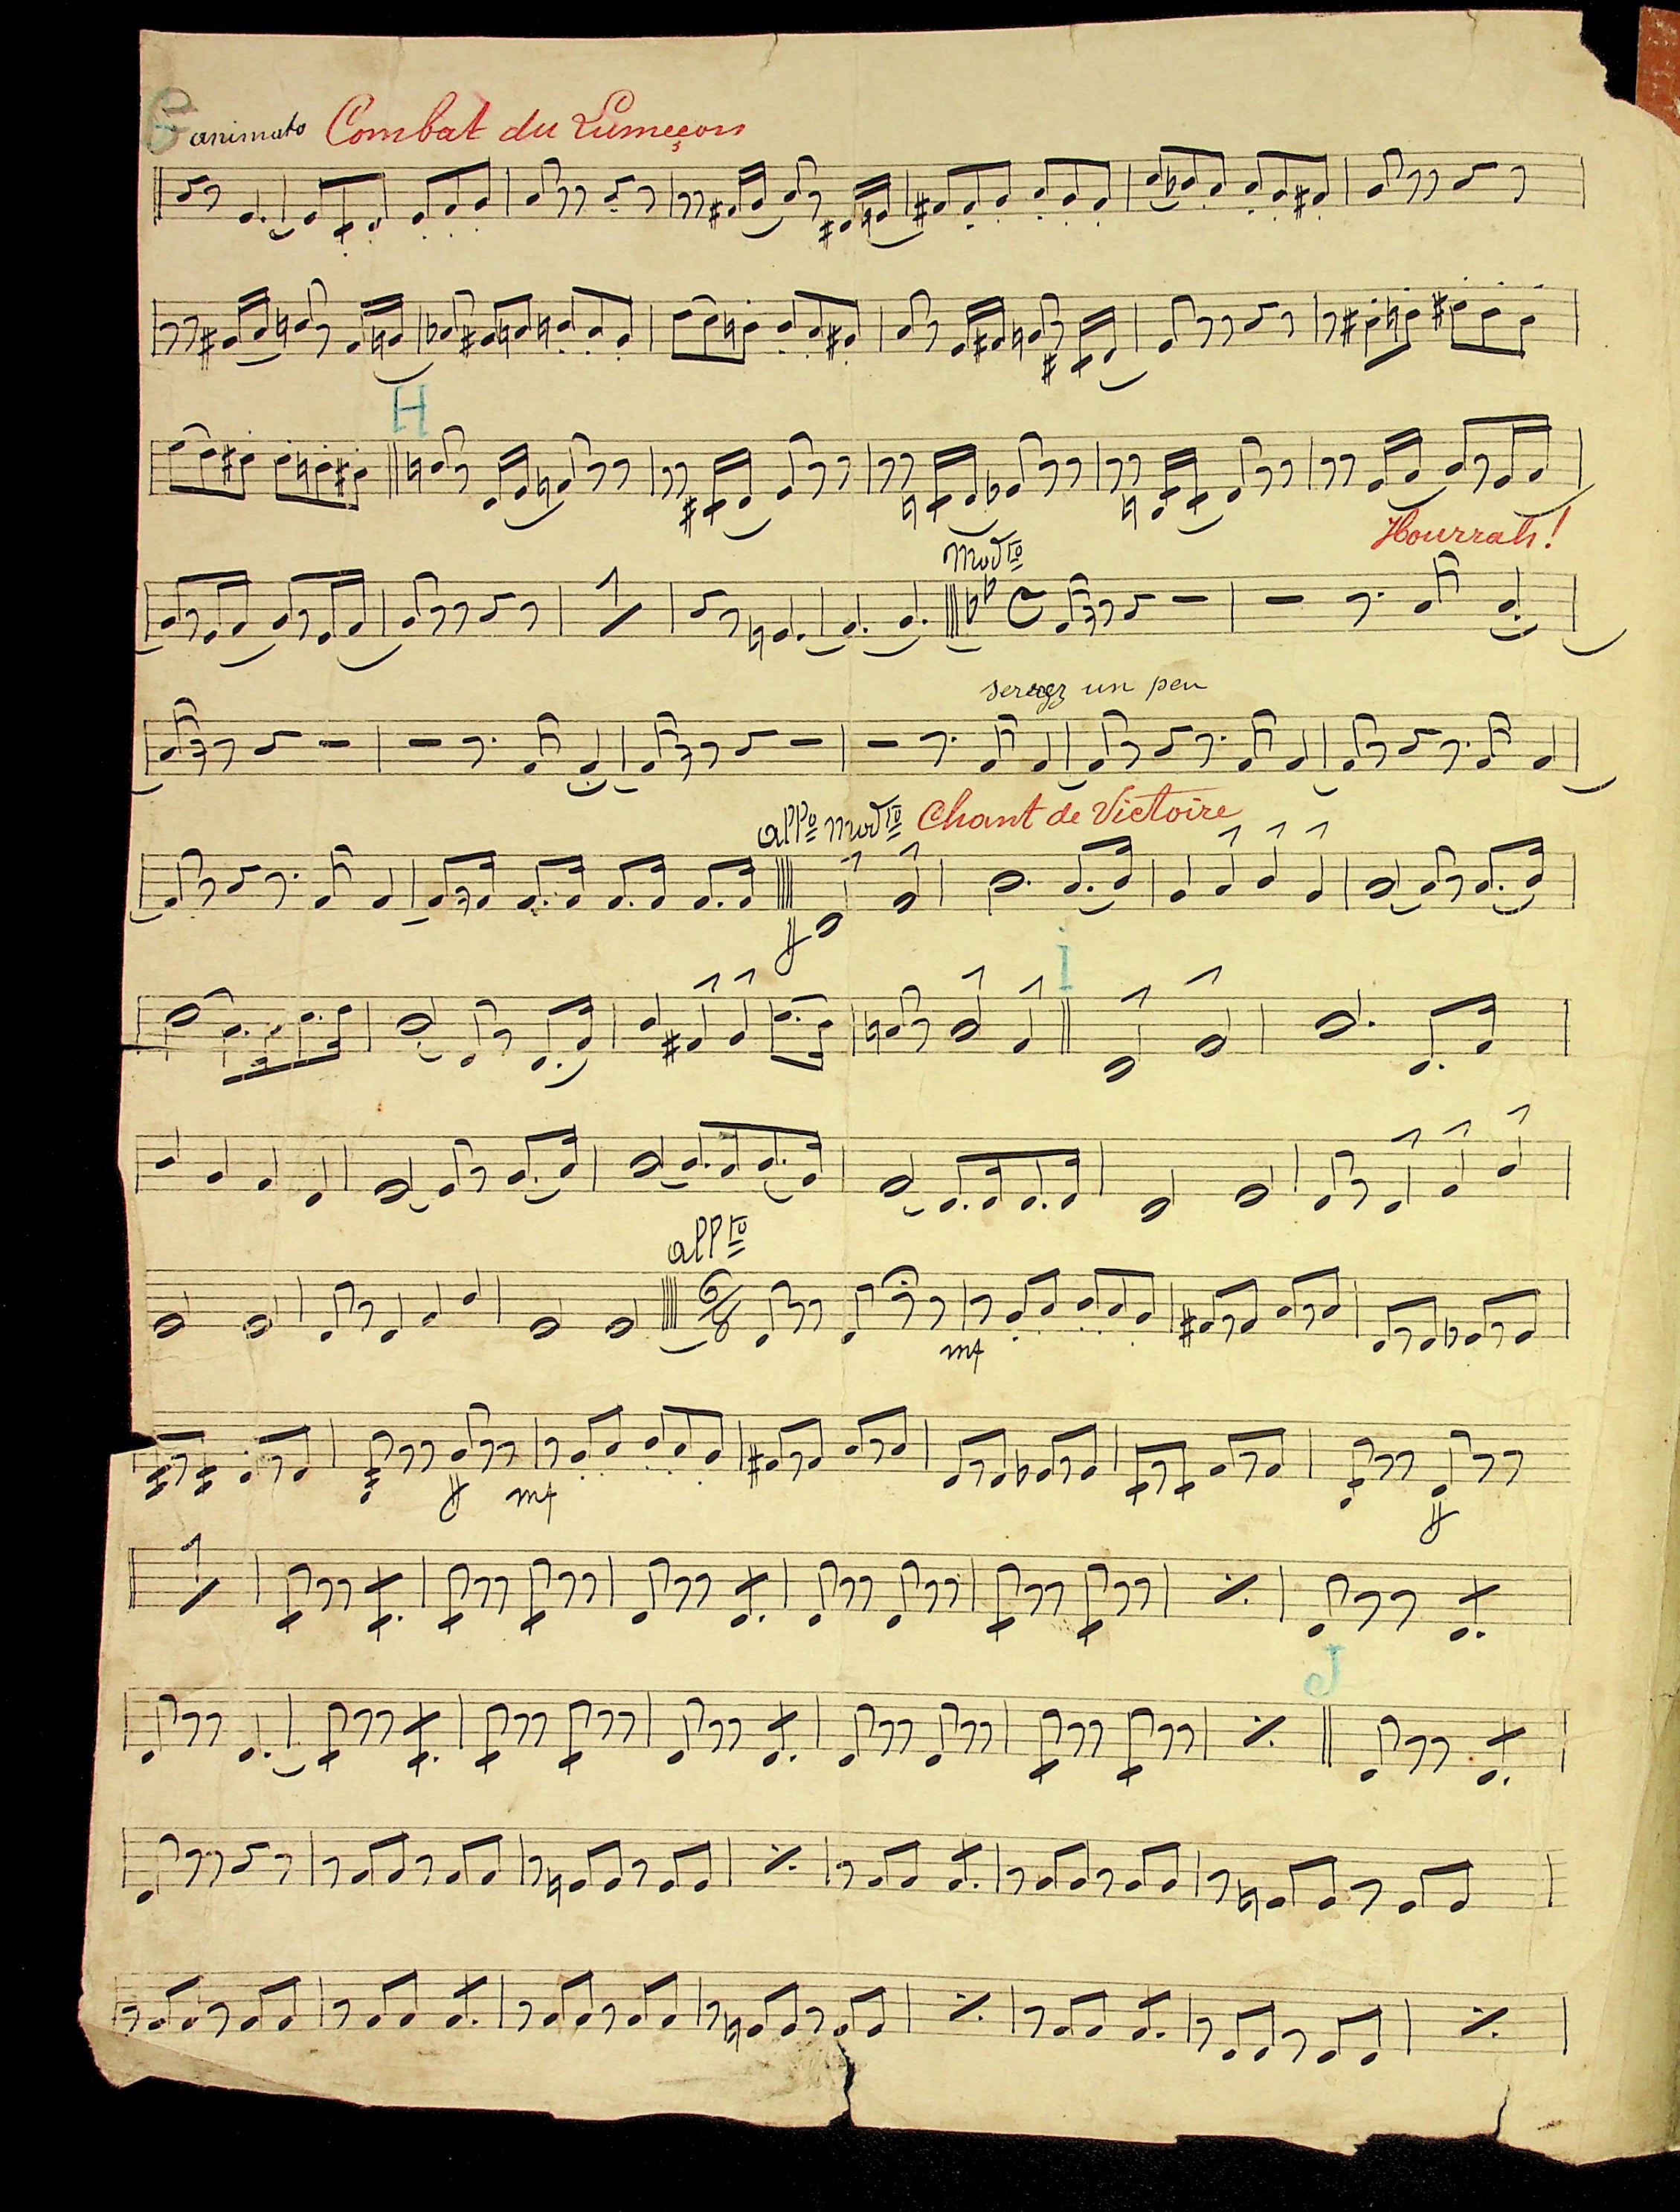 G animato Combat du Lumeçon
H
Hourrah!
Modto
serrez un peu
allo modto Chant de Victoire
ff
I
allto
6/8
mf
ff mf
ff
J